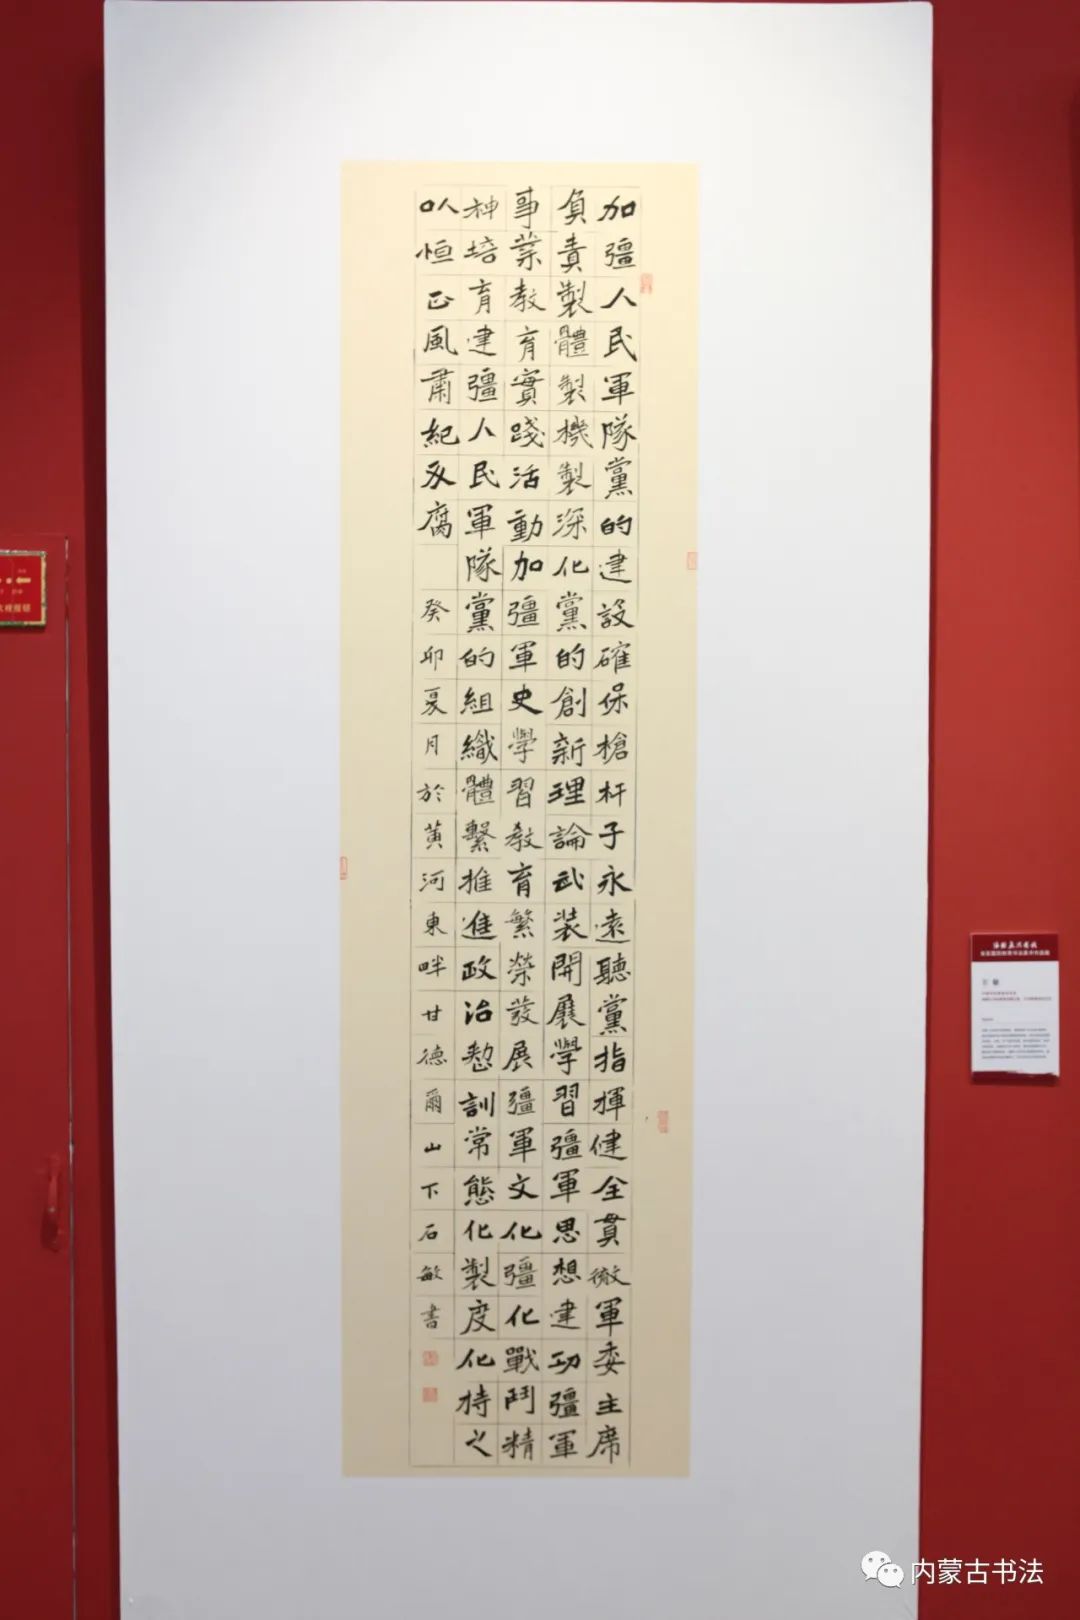 加彊人民軍隊黨的建設確保槍杆子永遠聽黨指揮健全貫徹軍委主席
負責製體製機製深化黨的創新理論武装開展學習彊軍思想建功彊軍
事業教育實踐活動加彊軍史學習教育繁荣發展彊軍文化彊化戰鬥精
神培育建彊人民軍隊黨的組織體繫推進政治整訓常態化製度化持之
以恒正風肅紀反腐
癸卯夏月於黄河東畔甘德爾山下石敏書
内蒙古书法